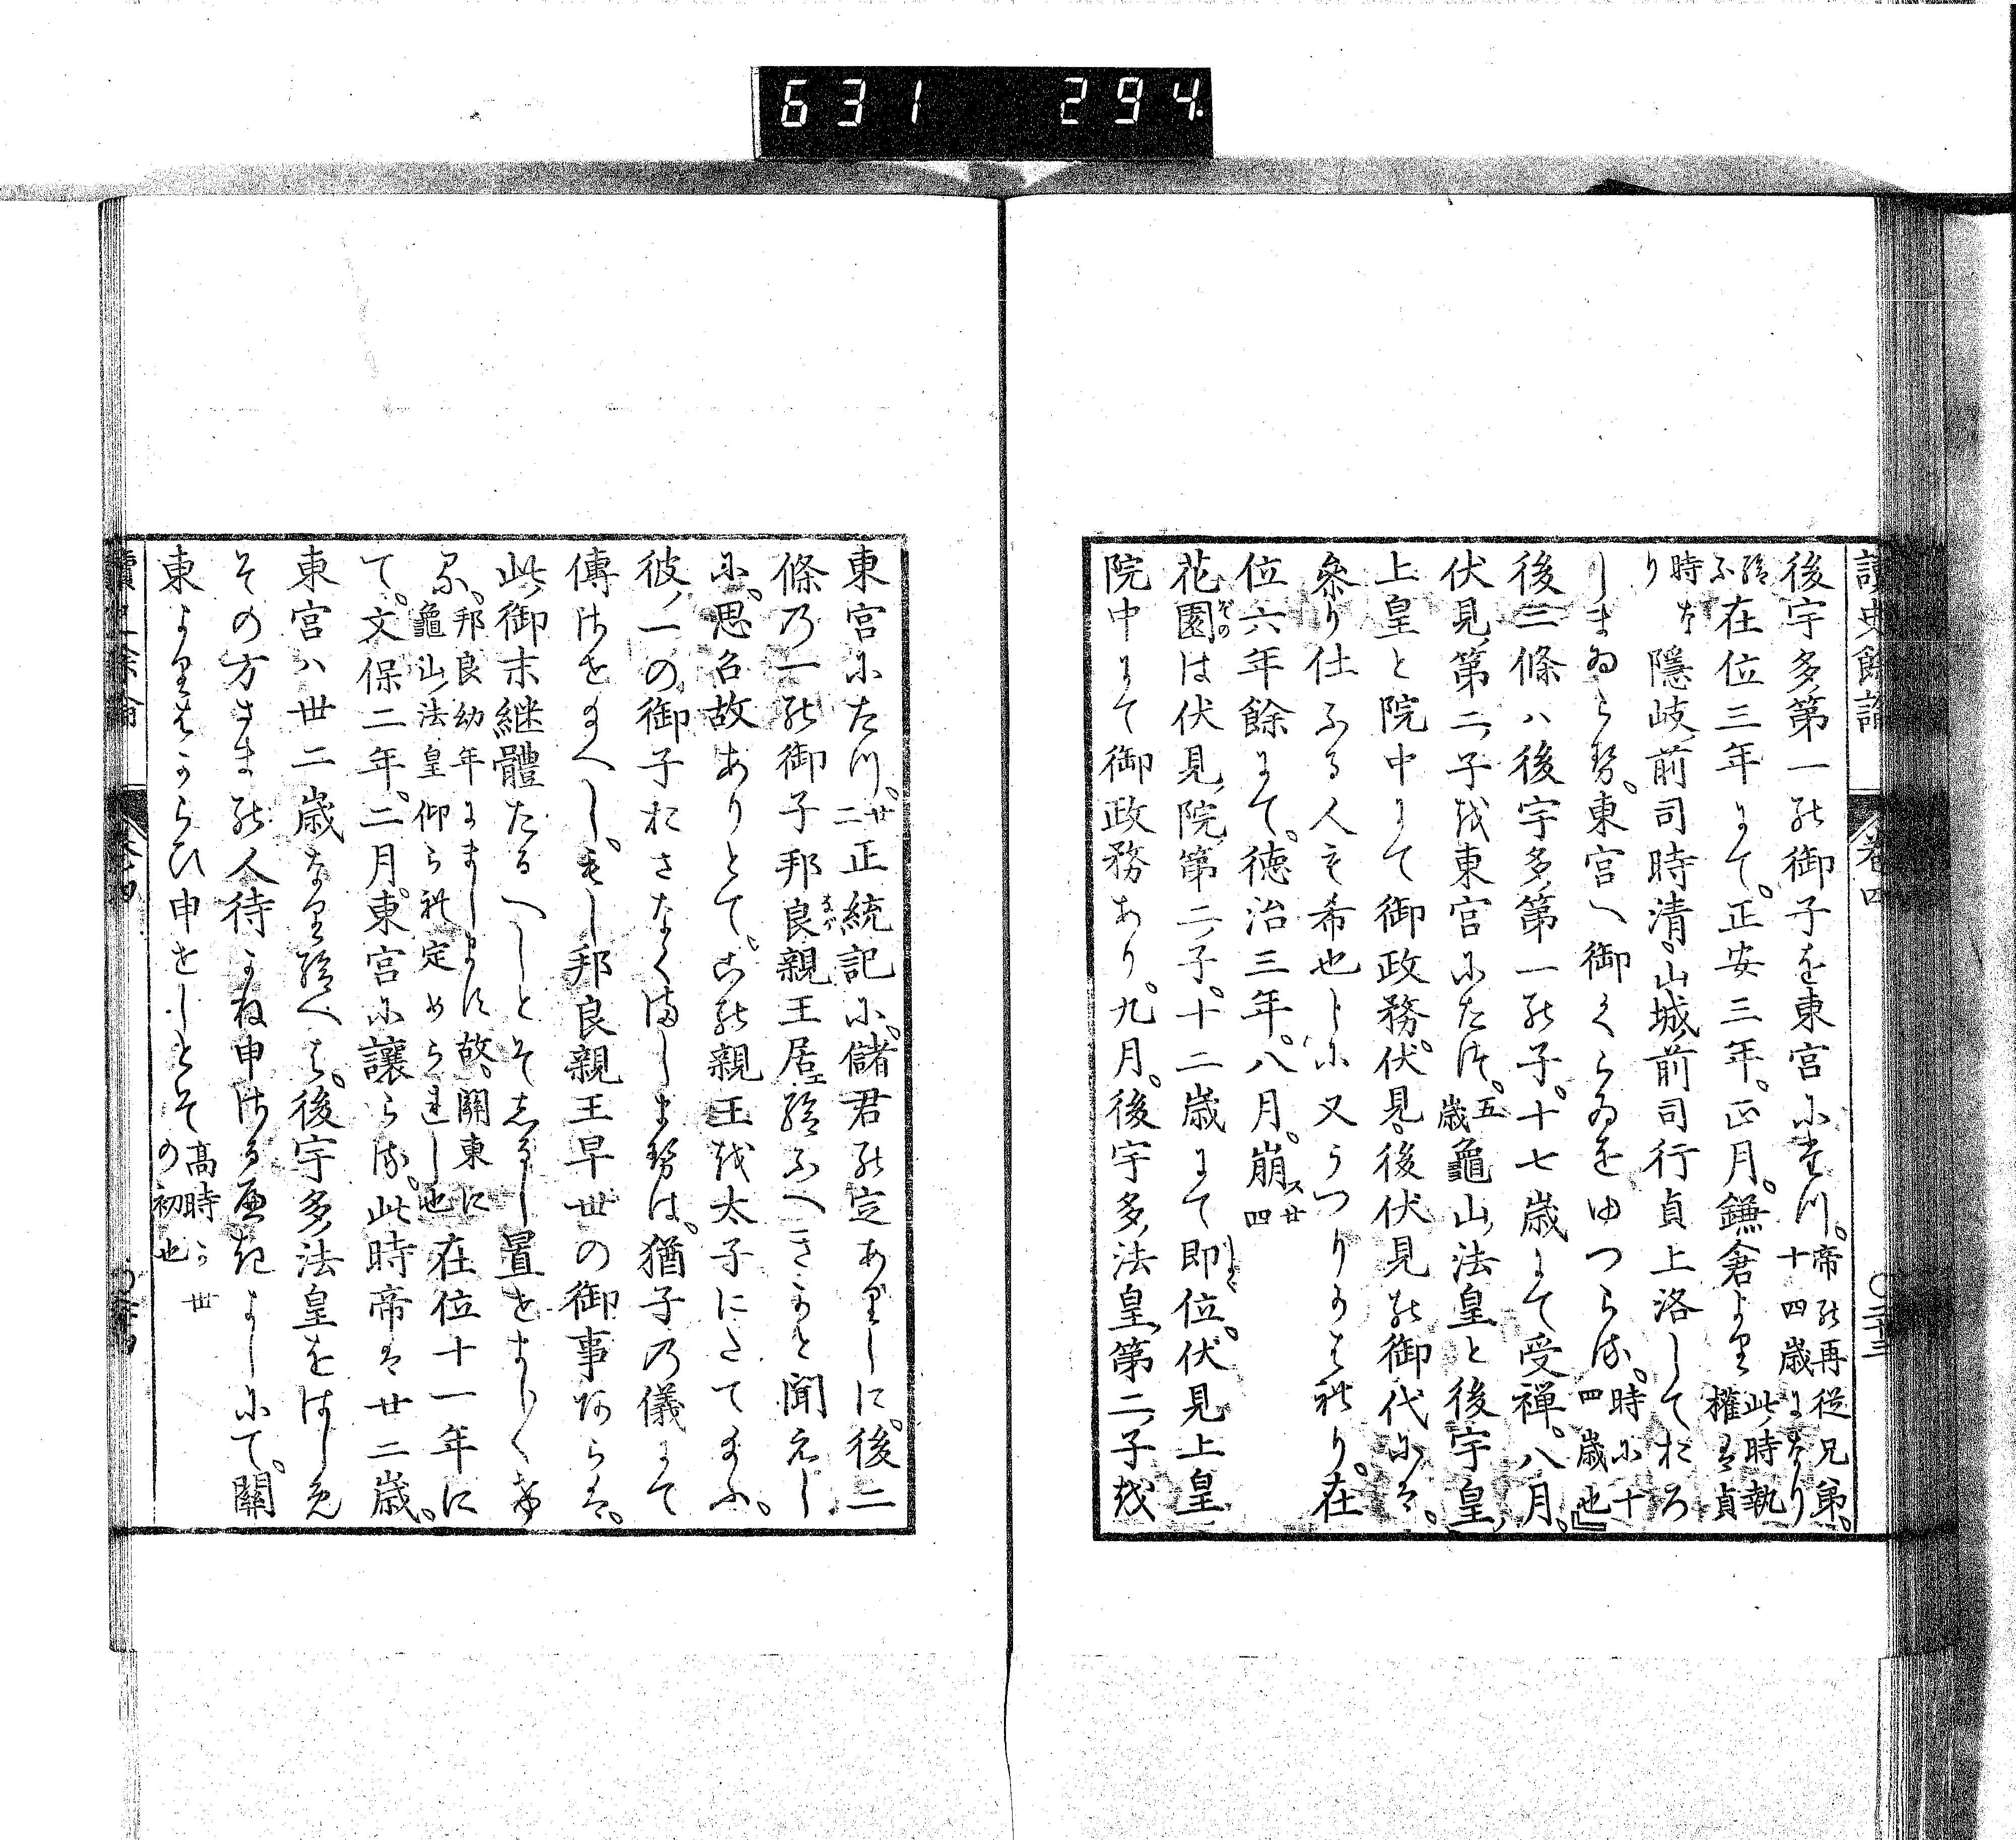 631 294.
讀史餘論 卷四 〇二十三
後宇多第一の御子を東宮に立つ。帝の再從兄弟。十四歳になり
給ふ在位三年にて。正安三年。正月。鎌倉より此時執權は貞
時なり隱岐前司時淸。山城前司行貞上洛しておろ
しまゐらせ。東宮へ御くらゐをゆつらる。時に十四歳也』
後二條ハ後宇多第一の子。十七歳にて受禅。八月。
伏見第二ノ子を東宮にたつ。五歳龜山ノ法皇と後宇皇ノ
上皇と院中にて御政務。伏見。後伏見の御代には。
參り仕ふる人も希也しに又うつりかはれり。在
位六年餘にて。徳治三年。八月。崩ス廿四
花園ぞのは伏見ノ院第二ノ子。十二歳にて即位。伏見上皇
院中にて御政務あり。九月。後宇多ノ法皇第二ノ子を
東宮にたつ。廿二正統記に。儲君の定ありしに。後二
條乃一の御子邦良親王居ヱ給ふへきかと聞えし
に。思召故ありとて。この親王を太子にたてまふ。
彼ノ一の御子おさなくましませは。猶子乃儀にて
傳はせまへし。もし邦良親王早世の御事あらは。
此ノ御末継體たるへしとそしるし置せましく
る。邦良幼年にまします故。關東に龜山ノ法皇仰られ定められし也在位十一年に
て。文保二年。二月。東宮に讓らる。此時帝は廿二歳。
東宮ハ世二歳なり給へは。後宇多ノ法皇をはしめ
その方さまの人待かね申さるゝよしにて。關
東よりはからひ申せしとそ高時か世の初也